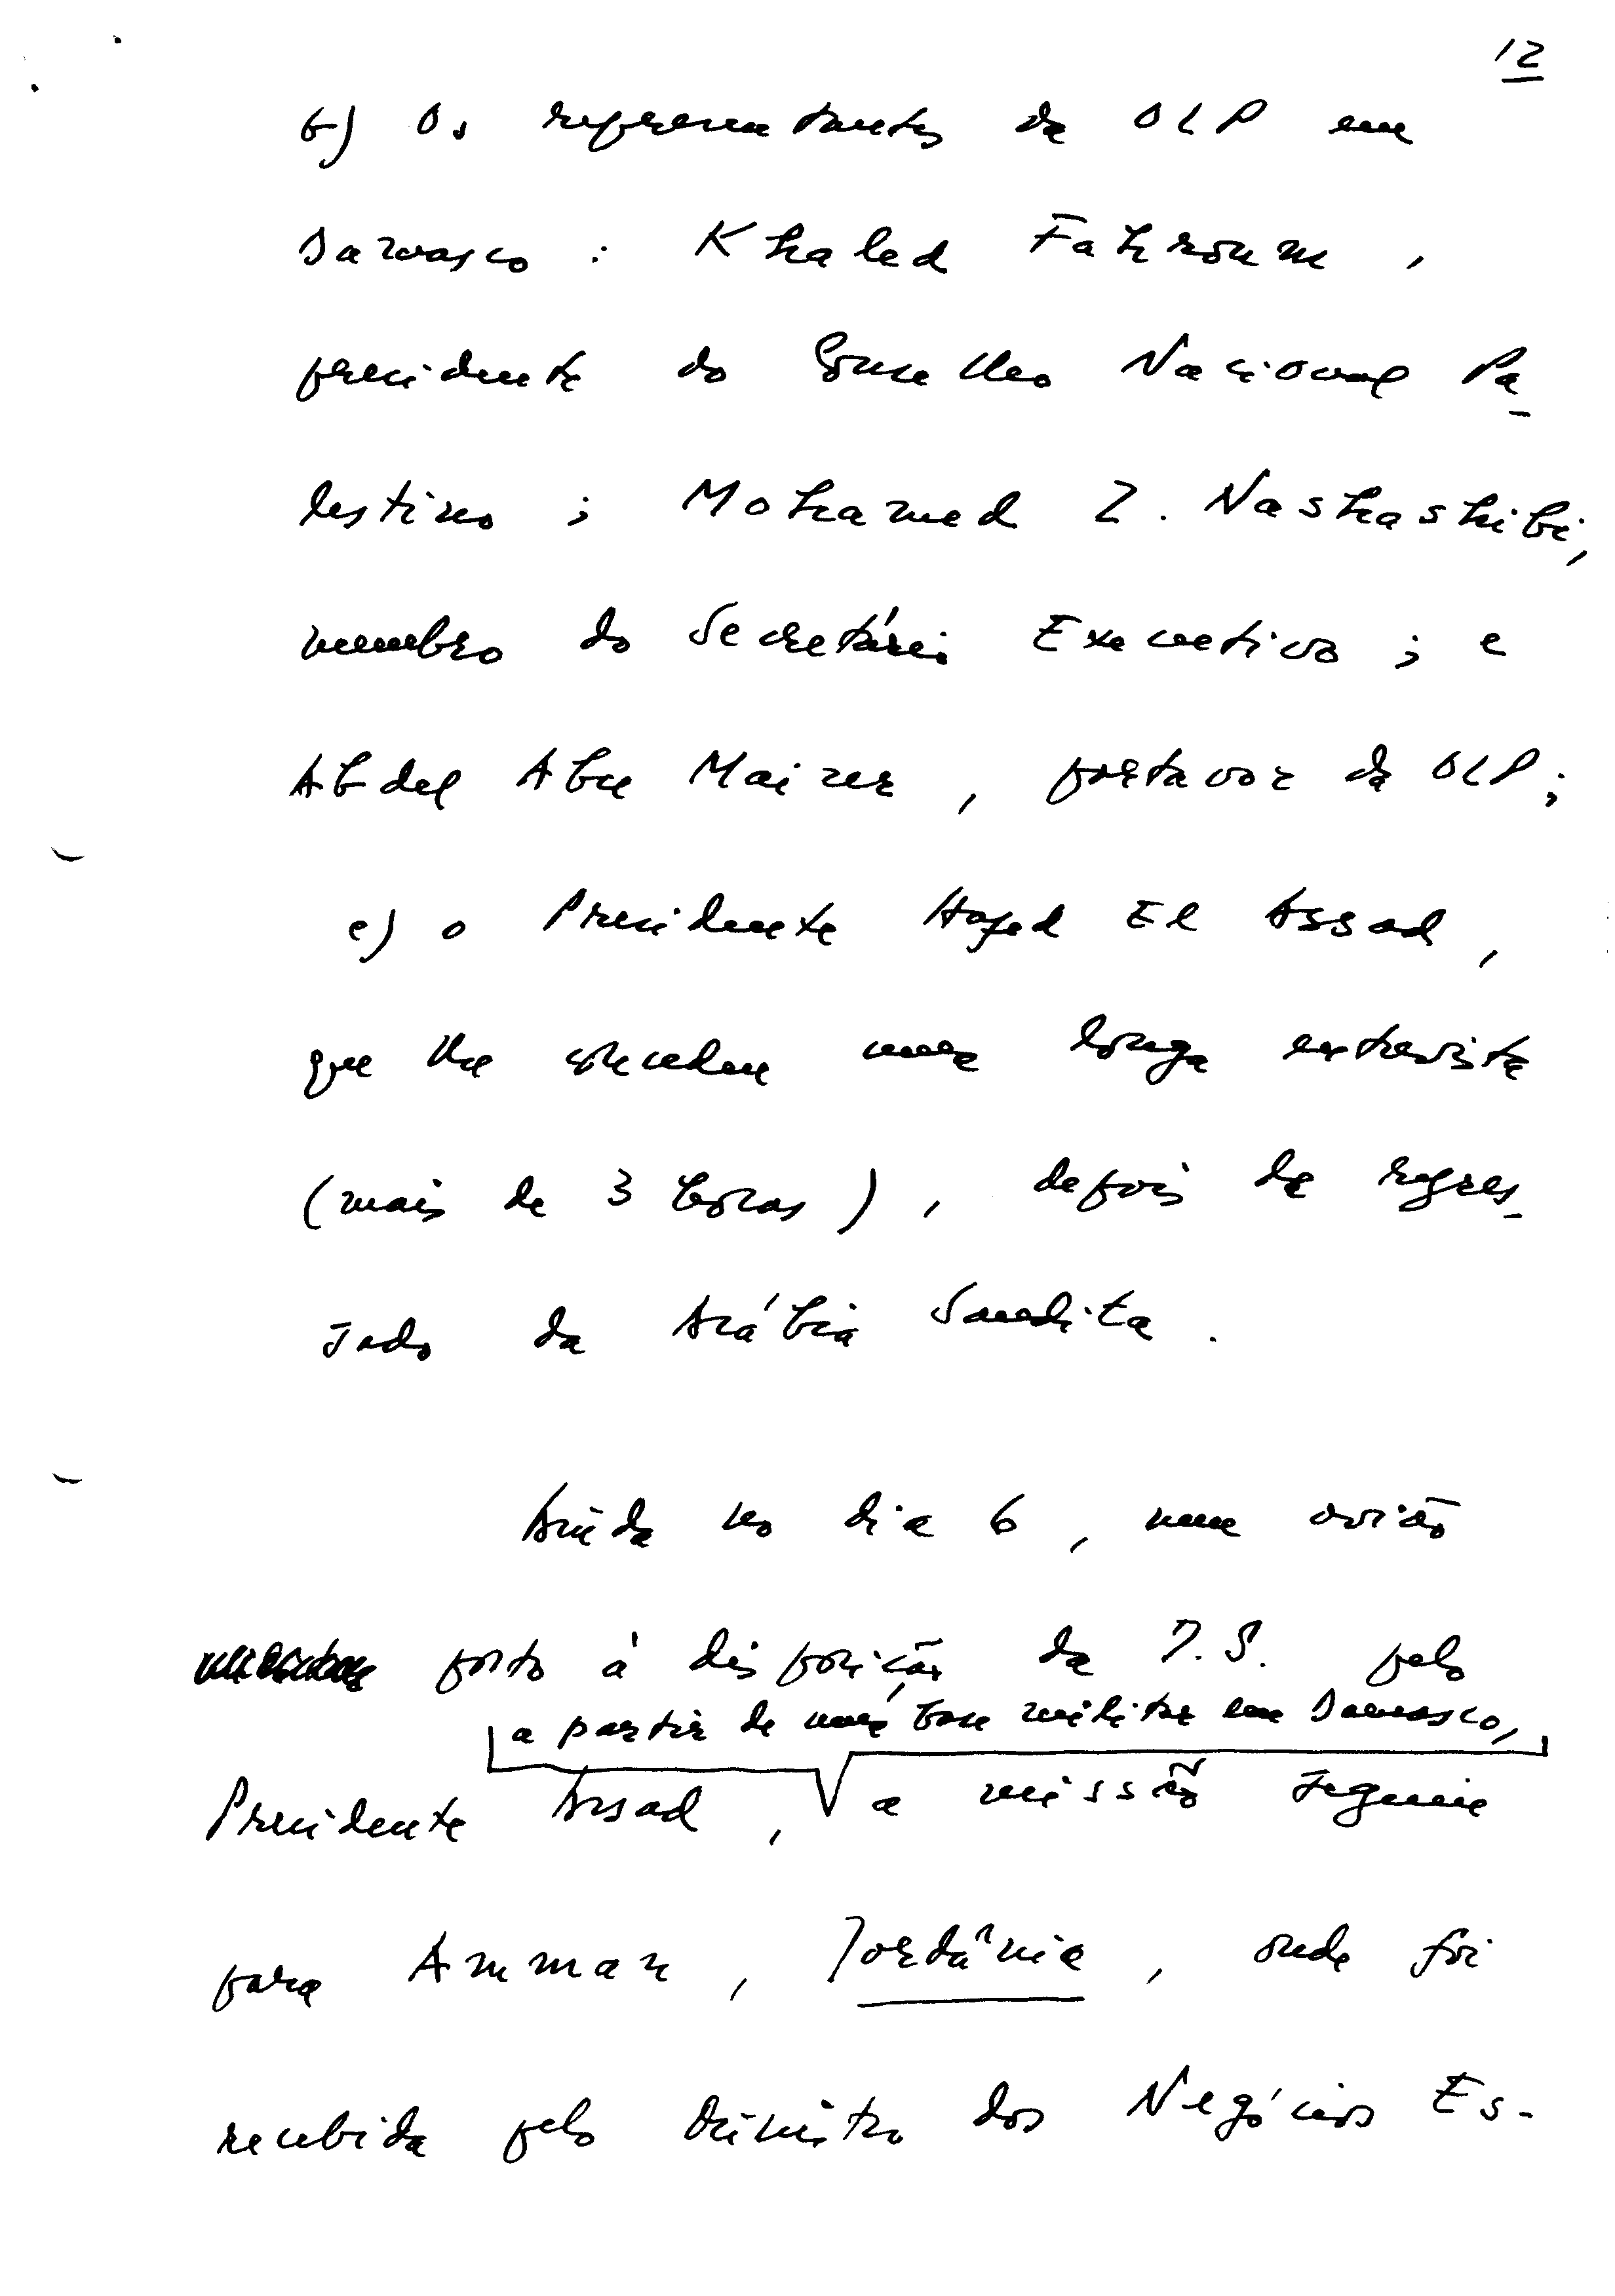 12
b) Os representantes da OLP em
Damasco : Khaled Fahroum ,
presidente do Conselho Nacional Pa-
lestino ; Mohamed Z. Nashashibi,
membro do Secretário Executivo ; e
Abdel Abu Maizer , portavoz da OLP ;
c) o Presidente Hafed El Assad ,
que lhe concedeu uma longa entrevista
(mais de 3 horas) , depois de regres-
sado da Arábia Saudita .
Ainda no dia 6 , num avião
posto à disposição da I.S. pelo
a partir de uma base militar em Damasco,
Presidente Assad , a missão seguiu
para Amman , Jordânia , onde foi
recebida pelo Ministro dos Negócios Es-